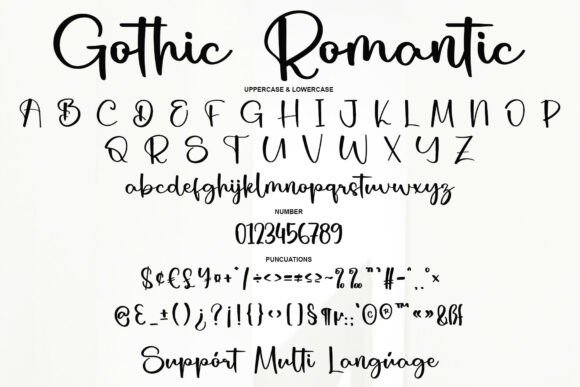 Gothic Romantic
UPPERCASE & LOWERCASE
A B C D E F G H I J K L M N O P
Q R S T U V W X Y Z
abcdefghijklmnopqrstuvwxyz
NUMBER
0123456789
PUNCUATIONS
$¢€£¥¤+*/÷<>=≠≤≥~%‰"'#-^.,°×
@&_±()¿?¡!{}‹›[]§¶µ:;'©®™«»&ßf
Suppórt Multi Langúage